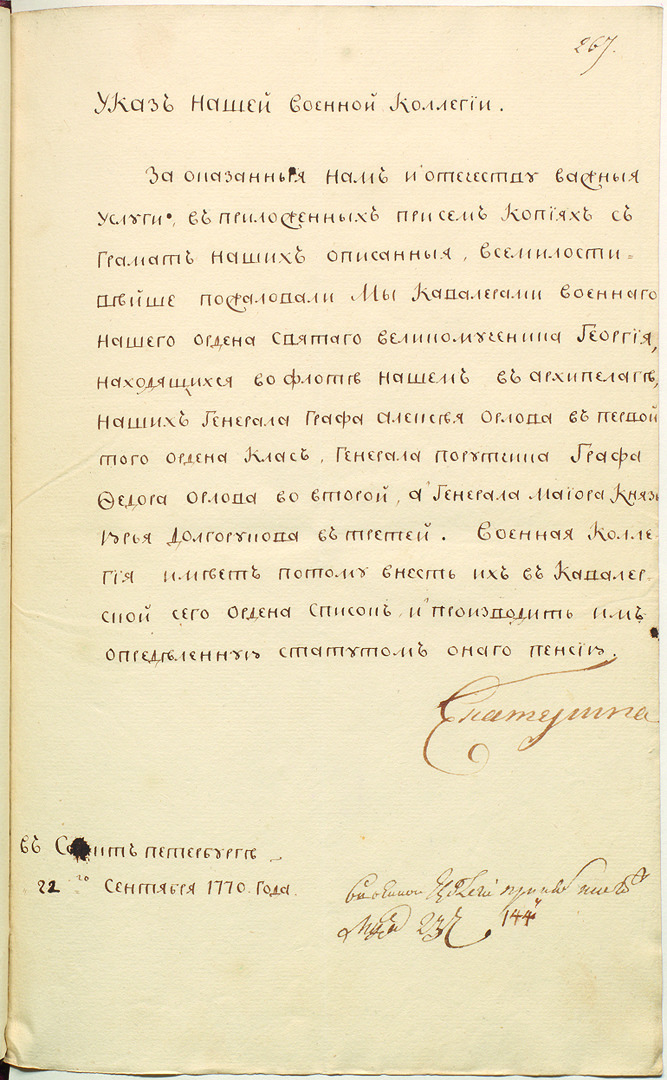 267.
Указъ нашей военной Коллегіи.
За оказанныя намъ и отечеству важныя
услуги, въ приложенныхъ при семъ Копіяхъ съ
Грамать нашихъ описанныя, всемилости-
вѣйше пожаловали Мы Кавалерами военнаго
нашего ордена Святаго великомученика Георгія,
находящихся во флотѣ нашемъ въ архипелагѣ,
нашихъ Генерала Графа Алексѣя Орлова въ первой
того ордена Класъ, Генерала порутчика Графа
Ѳедора Орлова во второй, а Генерала Маіора Князь
Юрья Долгорукова въ третей. Военная Колле-
гія имѣетъ потому внесть ихъ въ Кавалер-
ской сего Ордена Списокъ, и производить имъ
опредѣленную статутомъ онаго пенсію.
Екатерина
въ Санктъ петербургѣ
22го Сентября 1770. года.
144